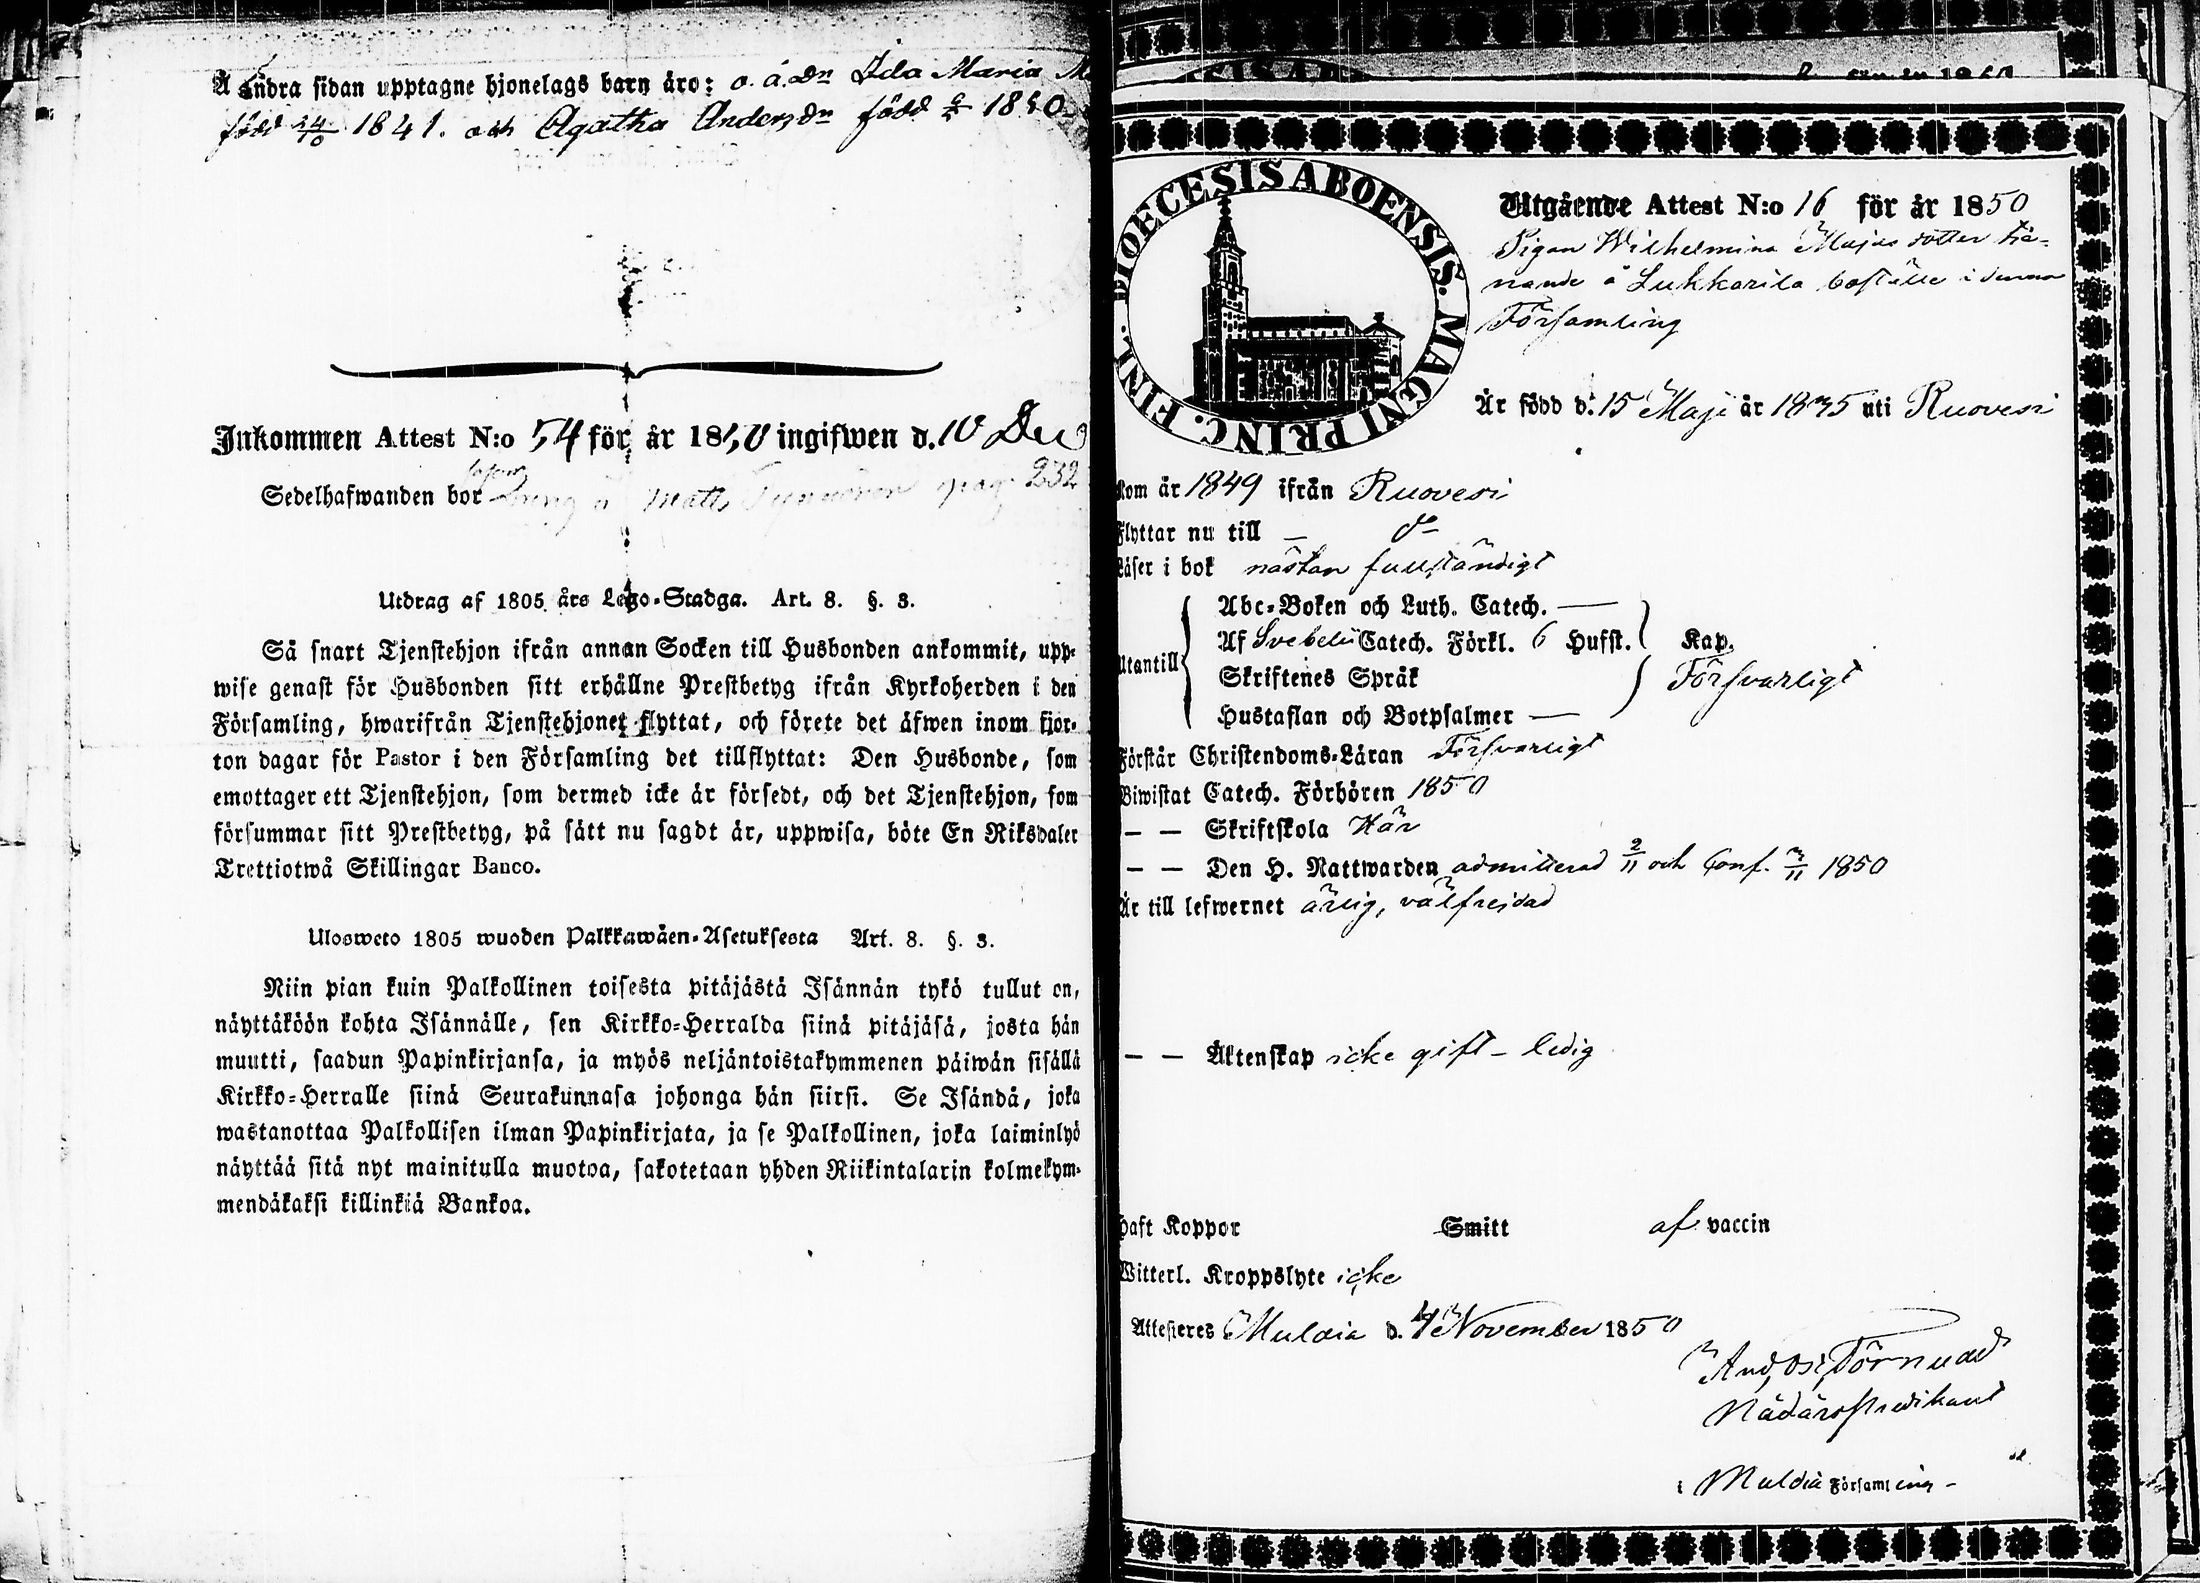 Å andra sidan upptagne hjonelags barn äro: o. ä. dr Ida Maria
född 24/10 1841. och Agatha Andersdr född 1850
Inkommen Attest N:o 54 för år 1850 ingifwen d. 10 Dec
Sedelhafwanden bor Matts pag. 232
Utdrag af 1805 års Lego-Stadga. Art. 8. §. 3.
Så snart Tjenstehjon ifrån annan Socken till Husbonden ankommit, upp-
wise genast för Husbonden sitt erhållne Prestbetyg ifrån Kyrkoherden i den
Församling, hwarifrån Tjenstehjonet flyttat, och förete det äfwen inom fjor-
ton dagar för Pastor i den Församling det tillflyttat: Den Husbonde, som
emottager ett Tjenstehjon, som dermed icke är försedt, och det Tjenstehjon, som
försummar sitt Prestbetyg, på sätt nu sagdt är, uppwisa, böte En Riksdaler
Trettiotwå Skillingar Banco.
Ulosweto 1805 wuoden Palkkawäen-Asetuksesta Art. 8. §. 3.
Niin pian kuin Palkollinen toisesta pitäjästä Isännän tykö tullut on,
näyttäköön kohta Isännälle, sen Kirkko-Herralda siinä pitäjäsä, josta hän
muutti, saadun Papinkirjansa, ja myös neljäntoistakymmenen päiwän sisällä
Kirkko-Herralle siinä Seurakunnasa johonga hän siirsi. Se Isändä, joka
wastanottaa Palkollisen ilman Papinkirjata, ja se Palkollinen, joka laiminlyö
näyttää sitä nyt mainitulla muotoa, sakotetaan yhden Riikintalarin kolmekym-
mendäkaksi killinkiä Bankoa.
DIOECESIS ABOENSIS. MAGNI PRINC. FINL.
Utgående Attest N:o 16 för år 1850
Pigan Wilhelmina Majas dotter tje-
nande å Lukkarila boställe i denna
Församling
Är född d. 15 Maji år 1835 uti Ruovesi
Kom år 1849 ifrån Ruovesi
Flyttar nu till — do
Läser i bok nästan fullständigt
Abc-Boken och Luth. Catech. —
Utantill Af Svebelii Catech. Förkl. 6 Hufst. Kap.
Skriftenes Språk Försvarligt
Hustaflan och Botpsalmer —
Förstår Christendoms-Läran Försvarligt
Biwistat Catech. Förhören 1850
— — Skriftskola Här
— — Den H. Nattwarden admitterad 2/11 och Conf. 3/11 1850
Är till lefwernet ärlig, välfrejdad
— — Äktenskap icke gift – ledig
Haft Koppor Smitt af vaccin
Witterl. Kroppslyte icke
Attesteres Muldia d. 4 November 1850
And, Os, Törnudd
Nådårspredikant
i Muldia Församling –